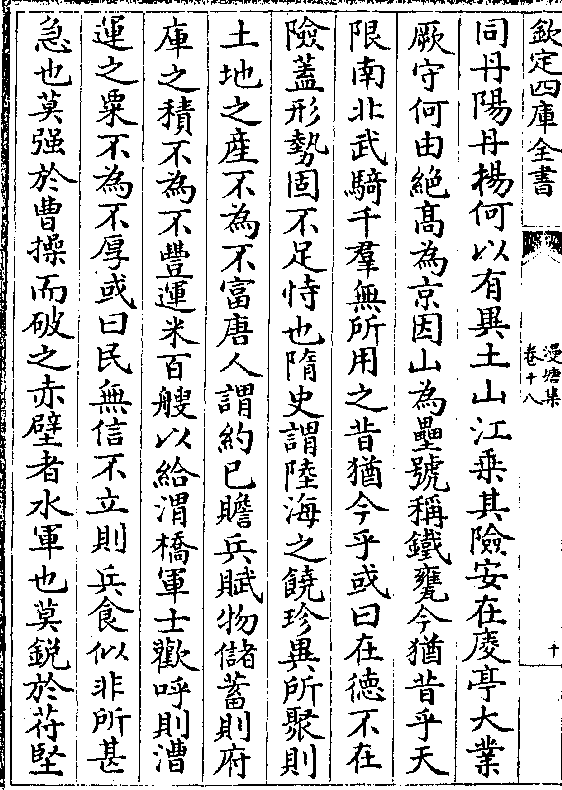 欽定四庫全書
漫塘集
卷十八
十
同丹陽丹楊何以有異土山江乗其險安在庱亭大業
厥守何由絶髙為京因山為壘號稱鐵甕今猶昔乎天
限南北武騎千羣無所用之昔猶今乎或曰在徳不在
險蓋形勢固不足恃也隋史謂陸海之饒珍異所聚則
土地之産不為不富唐人謂約已贍兵賦物儲蓄則府
庫之積不為不豐運米百艘以給渭橋軍士歡呼則漕
運之粟不為不厚或曰民無信不立則兵食似非所甚
急也莫强於曹操而破之赤壁者水軍也莫鋭於苻堅